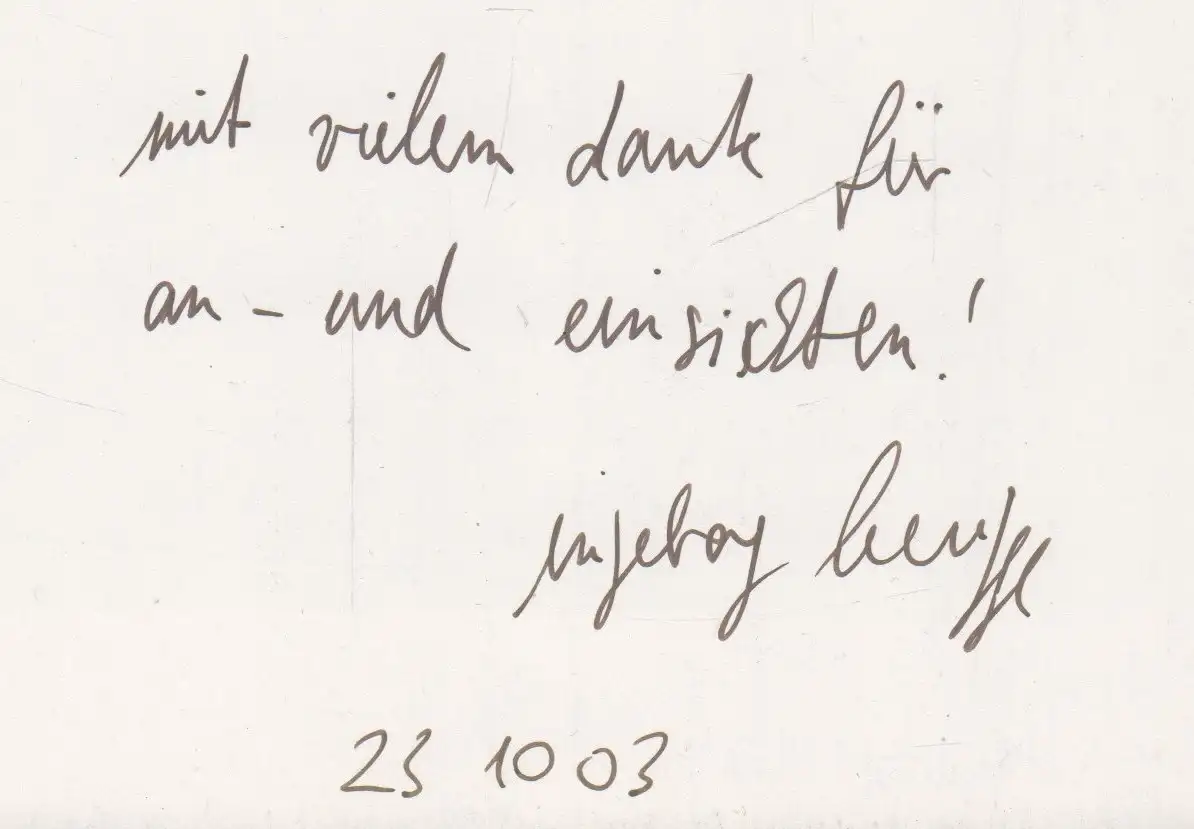 mit vielem dank für
an - und einsichten!
ingeborg
23 10 03